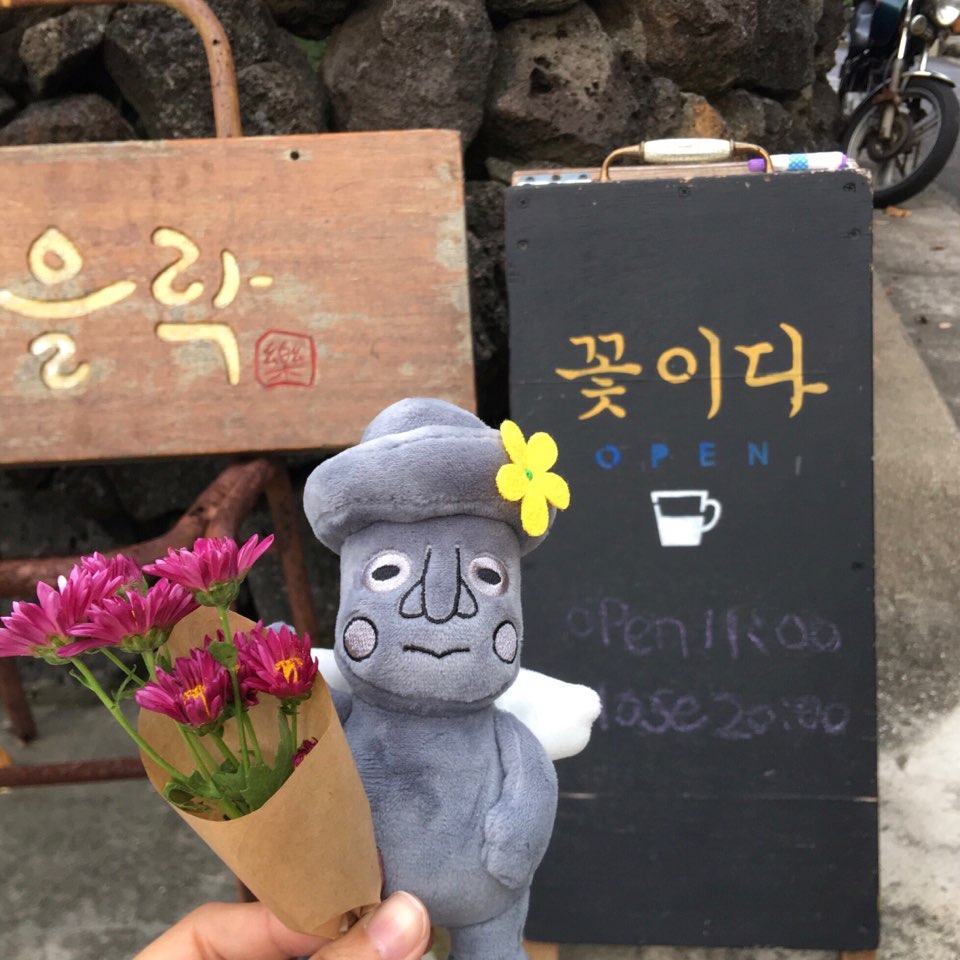 을락
樂
꽃이다
OPEN
open 11:00
lose 20:00